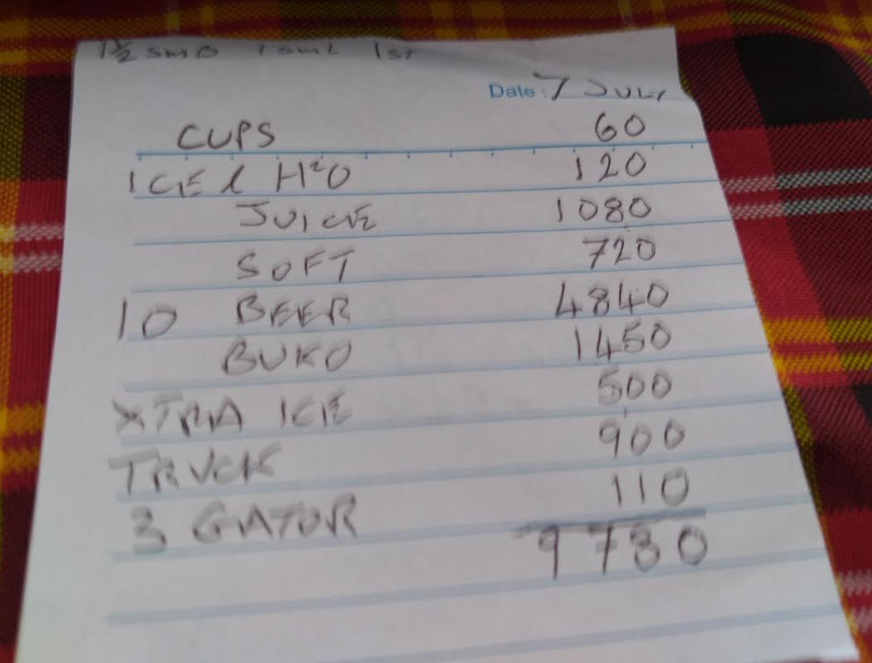 1½ SMB 1 SML 1 ST
Date: 7 JULY
CUPS 60
ICE & H²O 120
JUICE 1080
SOFT 720
10 BEER 4840
BUKO 1450
XTRA ICE 500
TRUCK 900
3 GATOR 110
9780